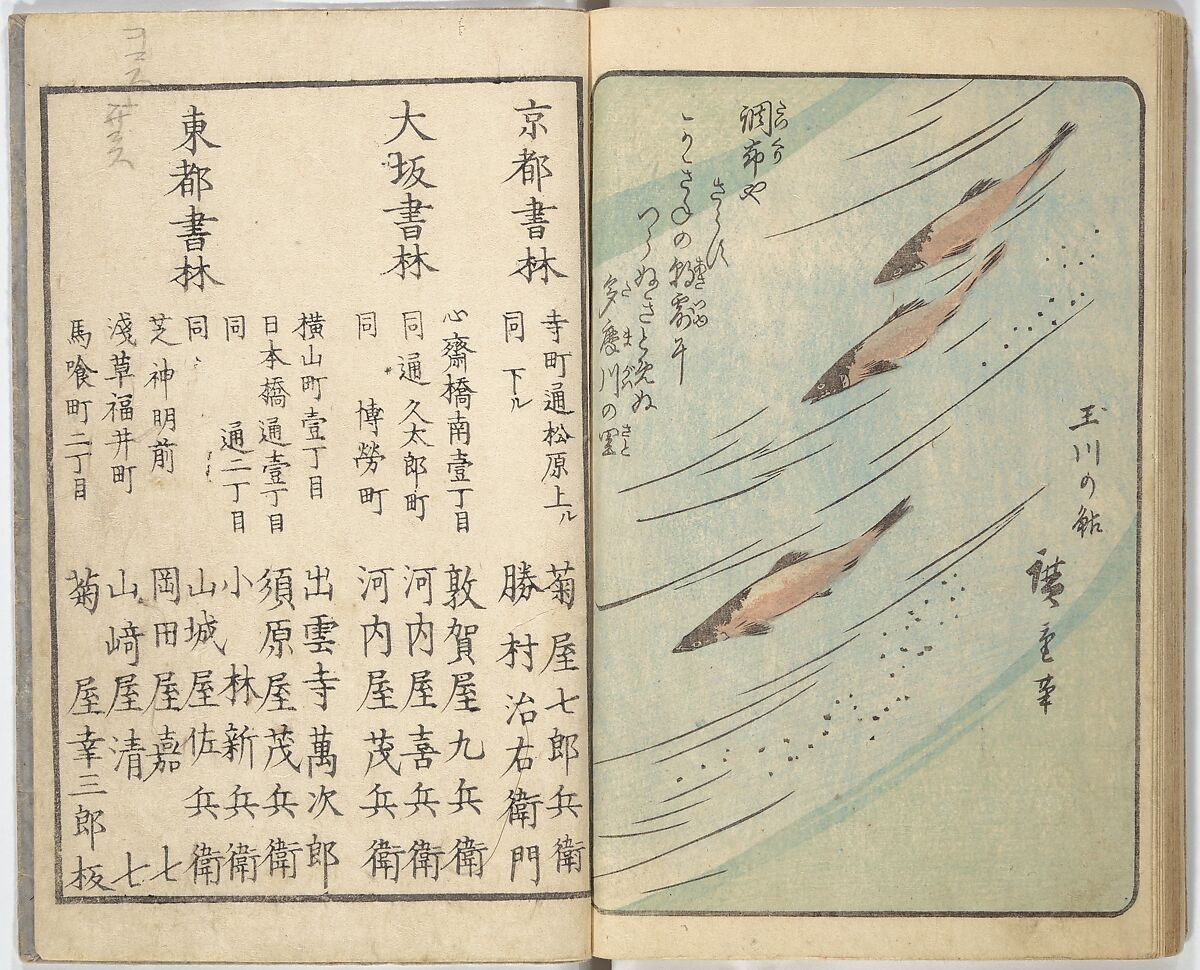 玉川の鮎
廣重筆
調布や
さらす
かきねの朝露を
つらぬきとめぬ
多摩川の里
京都書林
寺町通松原上ル 菊屋七郎兵衛
同 下ル 勝村治右衛門
大坂書林
心齋橋南壹丁目 敦賀屋九兵衛
同通久太郎町 河内屋喜兵衛
同 博勞町 河内屋茂兵衛
東都書林
横山町壹丁目 出雲寺萬次郎
日本橋通壹丁目 須原屋茂兵衛
同 通二丁目 小林新兵衛
同 山城屋佐兵衛
芝神明前 岡田屋嘉七
淺草福井町 山﨑屋清七
馬喰町二丁目 菊屋幸三郎板